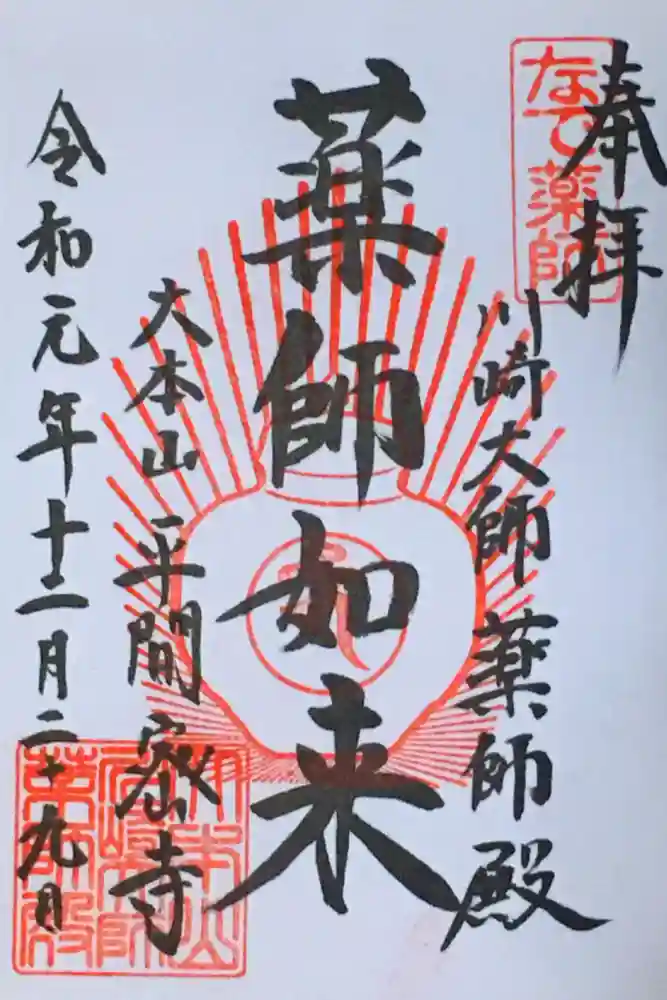 奉拝
なで薬師
川崎大師 薬師殿
薬師如来
大本山 平間密寺
令和元年十二月二十九日
大本山
川崎大師
薬師殿